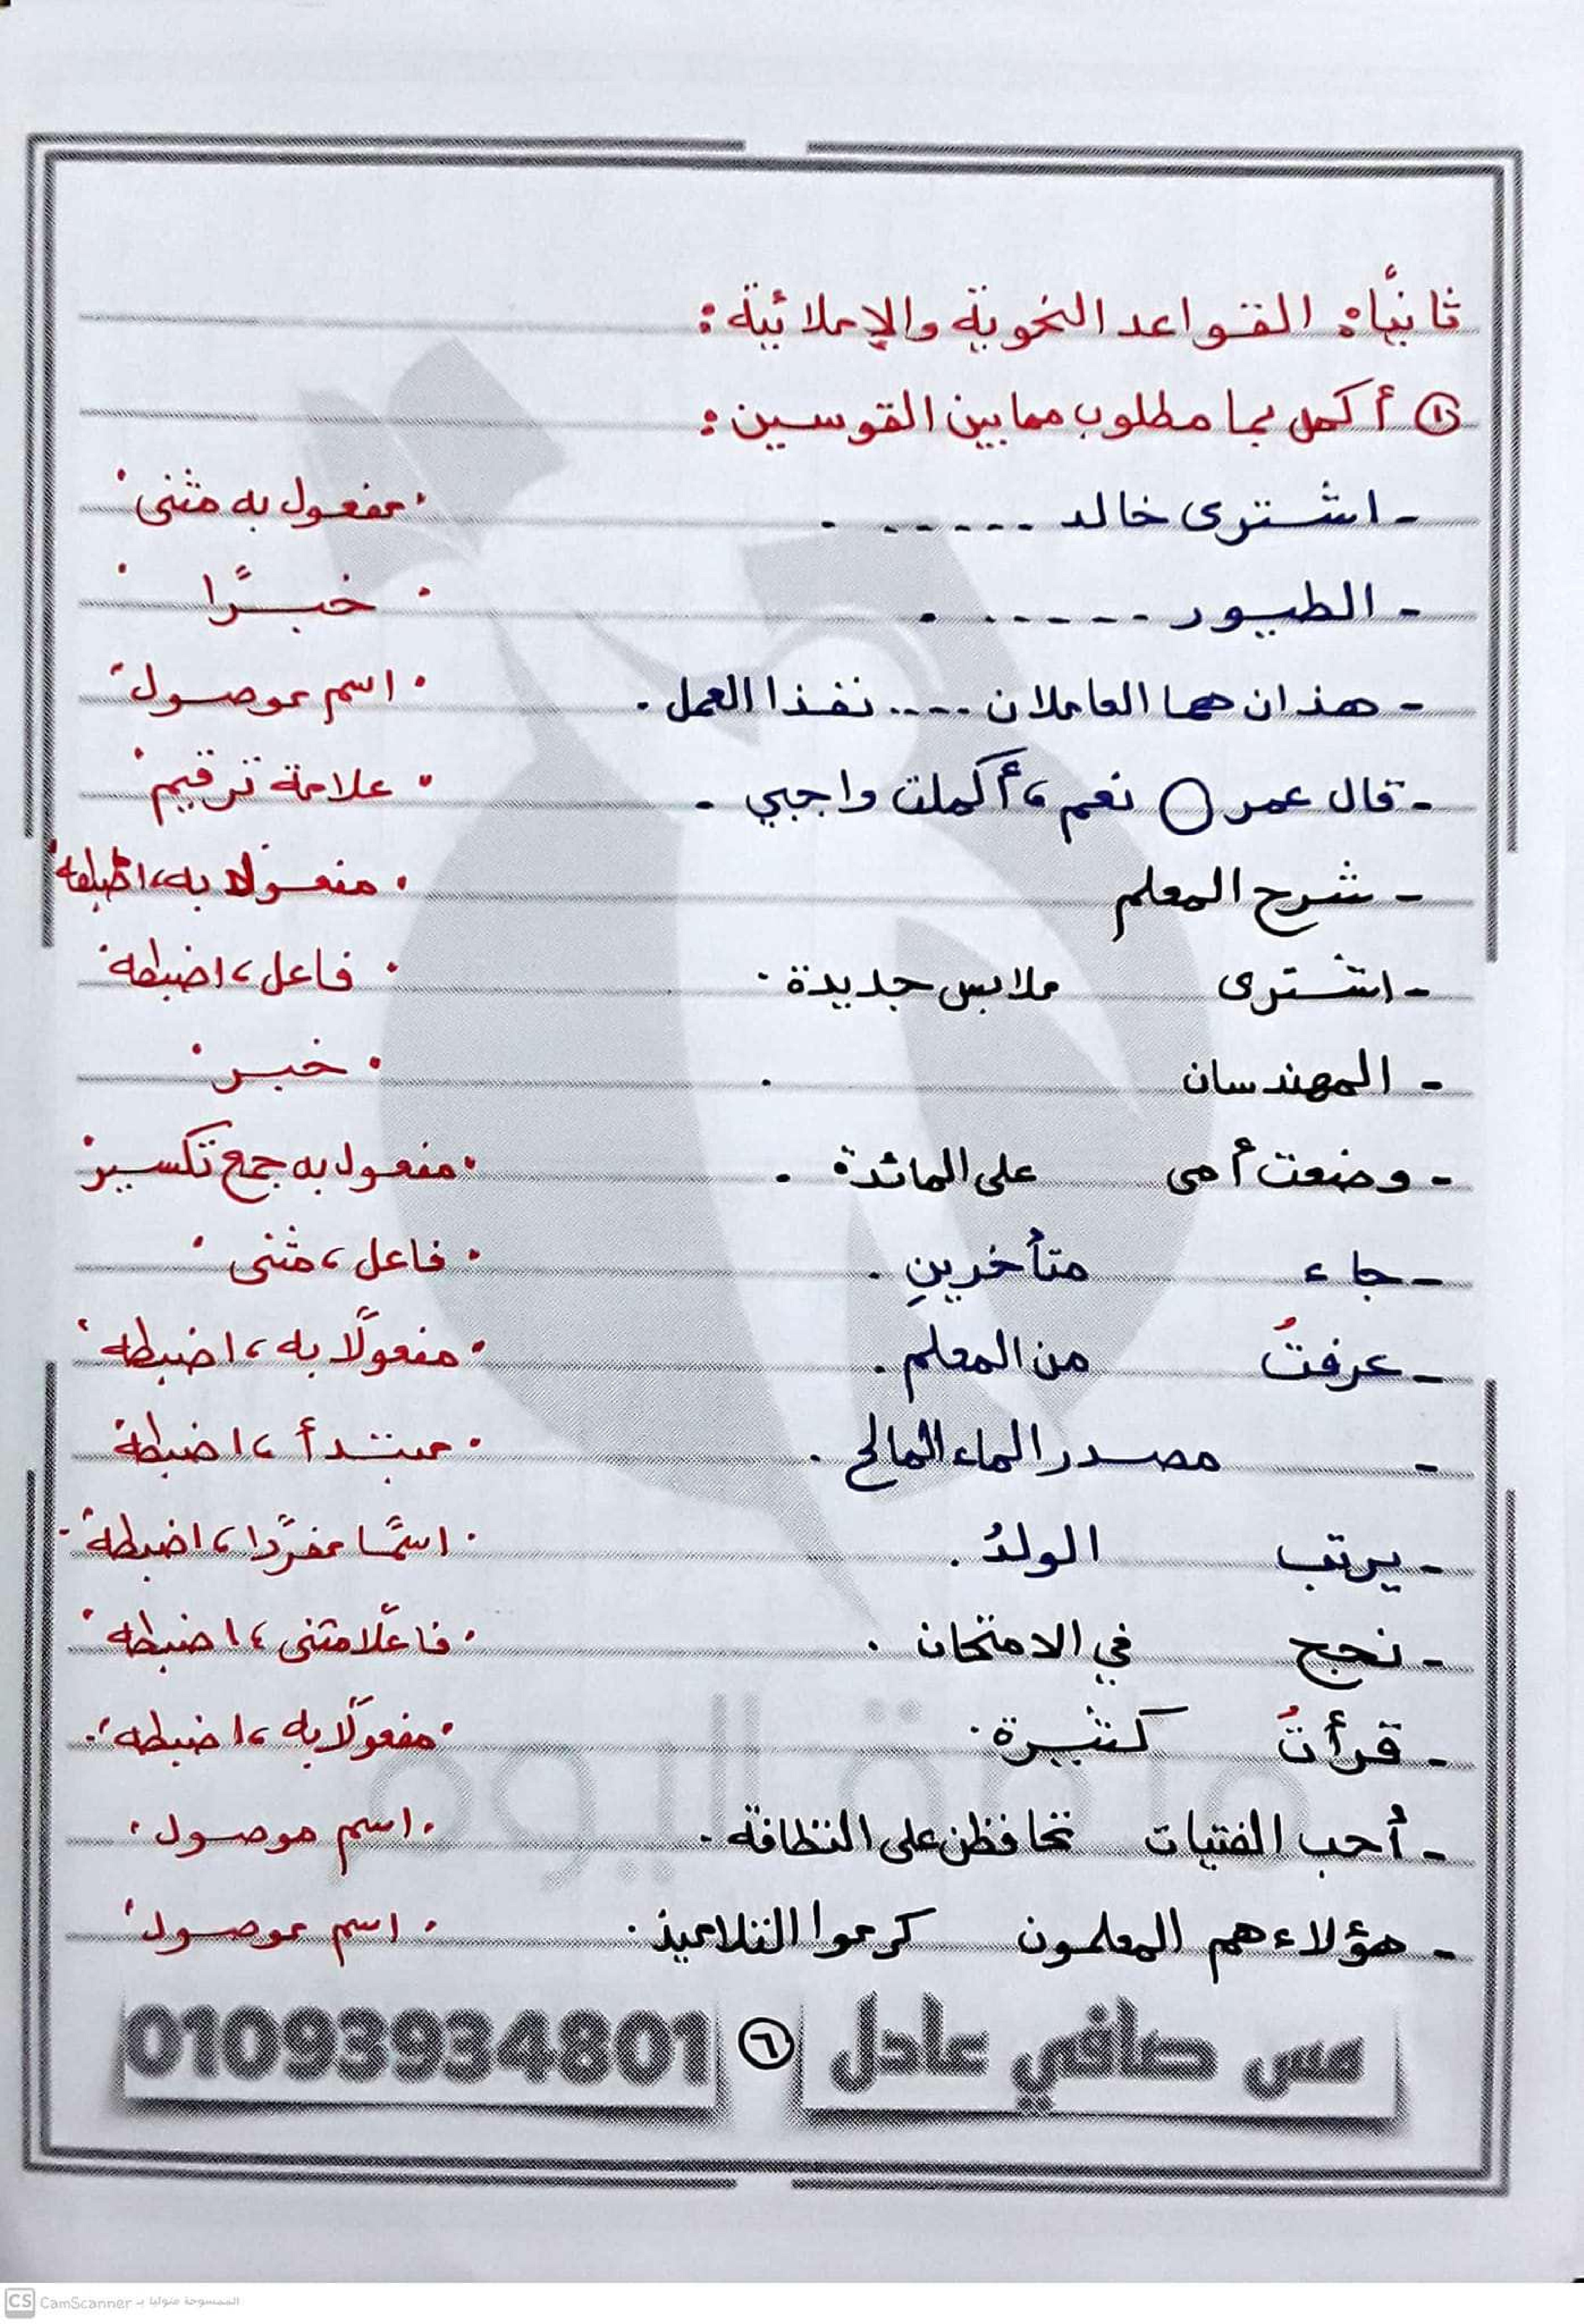 ثانيًا: القواعد النحوية والإملائية:
① أكمل بما مطلوب مما بين القوسين:
- اشترى خالد ------ . "مفعول به مثنى"
- الطيور ------ . "خبرًا"
- هذان هما العاملان ---- نفذا العمل . "اسم موصول"
- قال عمر ◯ نعم، أكملت واجبي . "علامة ترقيم"
- شرح المعلم "مفعولا به، اضبطه"
- اشترى ملابس جديدة . "فاعل، اضبطه"
- المهندسان . "خبر"
- وضعت أمى على المائدة . "مفعول به جمع تكسير"
- جاء متأخرينِ . "فاعل، مثنى"
- عرفتُ من المعلم . "مفعولًا به، اضبطه"
- مصدر الماء المالح . "مبتدأ، اضبطه"
- يرتب الولدُ . "اسمًا مفردًا، اضبطه"
- نجح في الامتحان . "فاعلًا مثنى، اضبطه"
- قرأتُ كثيرة . "مفعولًا به، اضبطه"
- أُحب الفتيات تحافظن على النظافة . "اسم موصول"
- هؤلاء هم المعلمون كرموا التلاميذ . "اسم موصول"
مس صافي عادل ٦ 01093934801
CS CamScanner الممسوحة ضوئيا بـ